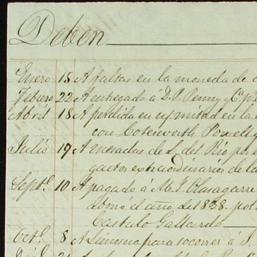 Deben
Enero 15 A faltas en la moneda de
Febrero 22 A entregado á D. P. Penny y Cª
Abril 18 A perdida en su mitad en la
con Coteworth Powell y
Julio 19 A mesadas de S. del Rio
gastos extraordinarios de la
Septe. 10 A pagado á M. J. Olavagarre
abono el año de 1828.
Castulo Gallardo
Octe. 8 A Llencino para socorrer á S.